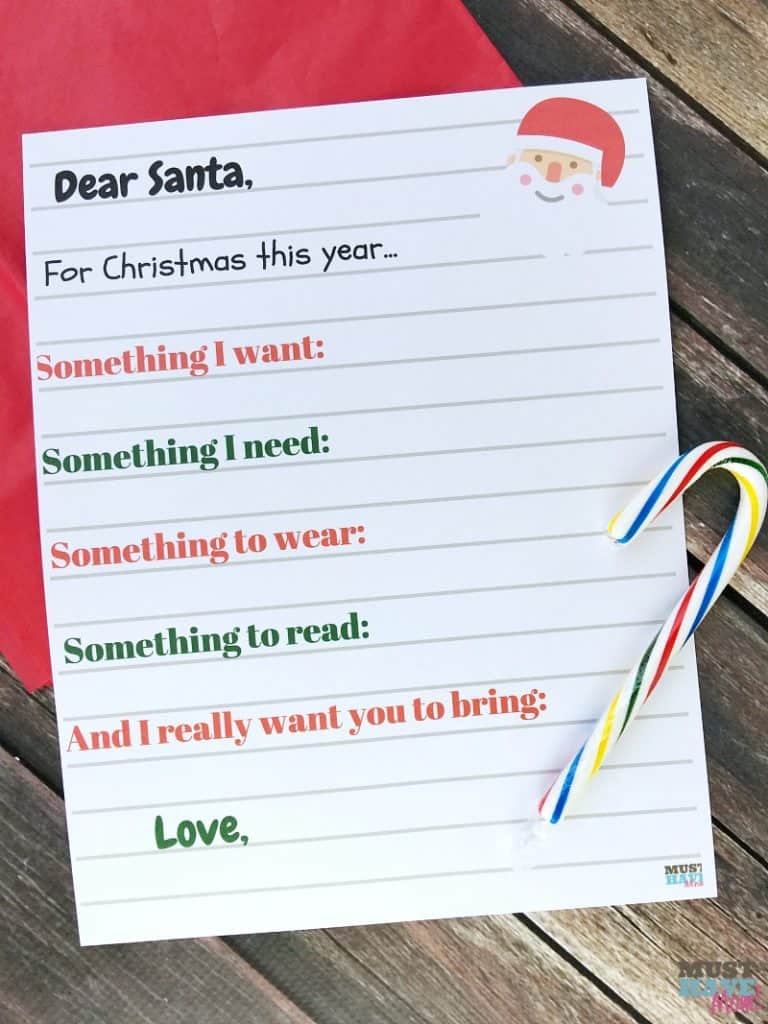 Dear Santa,
For Christmas this year...
Something I want:
Something I need:
Something to wear:
Something to read:
And I really want you to bring:
Love,
MUST
HAVE
Mom
MUST
HAVE
Mom!